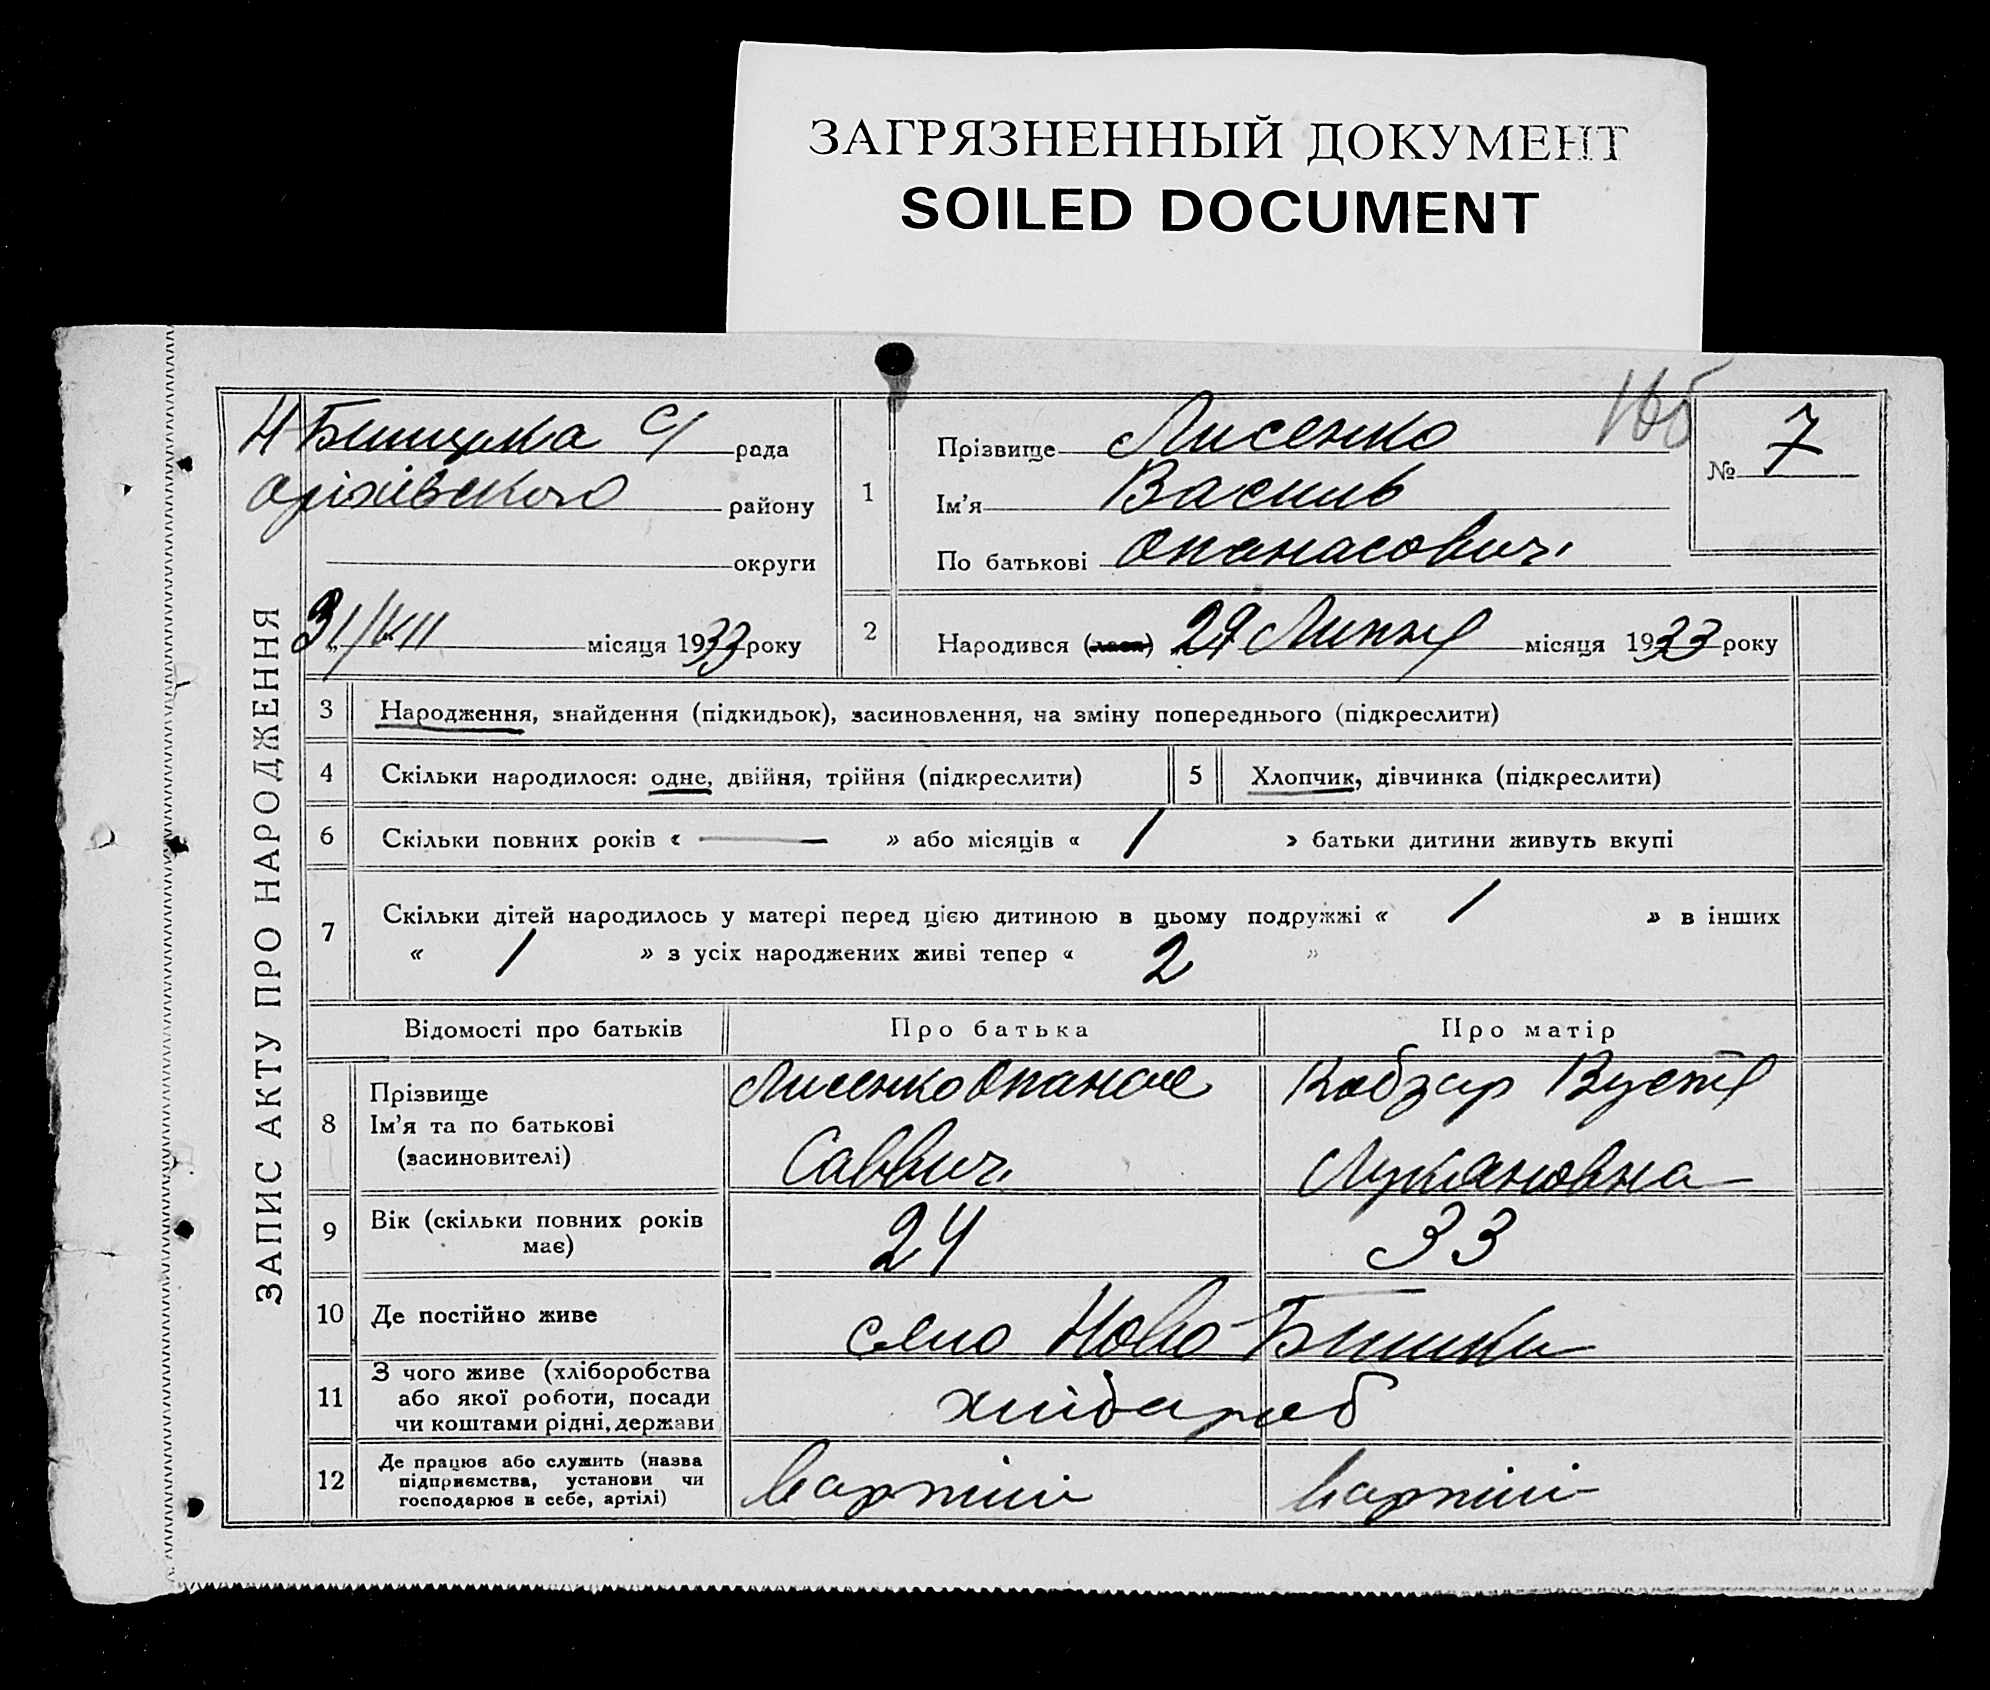 ЗАГРЯЗНЕННЫЙ ДОКУМЕНТ
SOILED DOCUMENT
ЗАПИС АКТУ ПРО НАРОДЖЕННЯ
Н Бишцька с/ рада
оріхівського району
округи
31/VIII місяця 1933 року
1
Прізвище Лисенко
Ім'я Василь
По батькові Опанасович
№ 7
2 Народився (лася) 29 Липня місяця 1933 року
3 Народження, знайдення (підкидьок), засиновлення, на зміну попереднього (підкреслити)
4 Скільки народилося: одне, двійня, трійня (підкреслити)
5 Хлопчик, дівчинка (підкреслити)
6 Скільки повних років « — » або місяців « 1 » батьки дитини живуть вкупі
7 Скільки дітей народилось у матері перед цією дитиною в цьому подружжі « 1 » в інших
« 1 » з усіх народжених живі тепер « 2 »
Відомості про батьків Про батька Про матір
8 Прізвище
Ім'я та по батькові
(засиновителі)
Лисенко Опанас
Саввич
Кобзар Вустя
Лукяновна
9 Вік (скільки повних років
має)
24 33
10 Де постійно живе село Ново-Бишки
11 З чого живе (хліборобства
або якої роботи, посади
чи коштами рідні, держави
хлібароб
12 Де працює або служить (назва
підприємства, установи чи
господарює в себе, артілі)
вартілі вартілі